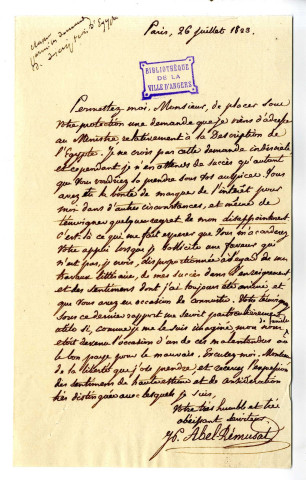 Paris, 26 juillet 1823.
BIBLIOTHÈQUE
DE LA
VILLE D'ANGERS
Permettez moi, Monsieur, de placer sous
votre protection une demande que je viens d'adresser
au Ministre relativement à la Description de
l'Egypte. Je ne crois pas cette demande indiscrète
et cependant je n'en attends de succès qu'autant
que vous voudriez la prendre sous vos auspices. Vous
avez eu la bonté de marquer de l'intérêt pour
moi dans d'autres circonstances, et même de
témoigner quelque regret de mon désappointement.
C'est là ce qui me fait espérer que vous m'accorderez
votre appui lorsque je sollicite une faveur qui
n'est pas, je crois, disproportionnée à l'égard de mes
travaux littéraires, de mes succès dans l'enseignement
et des sentimens dont j'ai toujours été animé et
que vous avez eu occasion de connoître. Votre témoignage
sous ce dernier rapport me seroit particulièrement
utile si, comme je me le suis imaginé mon nom
étoit devenu l'occasion d'un de ces malentendus où
le bon paye pour le mauvais. Excusez moi, Monsieur
de la liberté que j'ose prendre, et recevez l'expression
des sentimens de haute estime et de considération
très distinguée avec lesquels je suis,
Votre très humble et très
obéissant serviteur
JP. Abel Rémusat